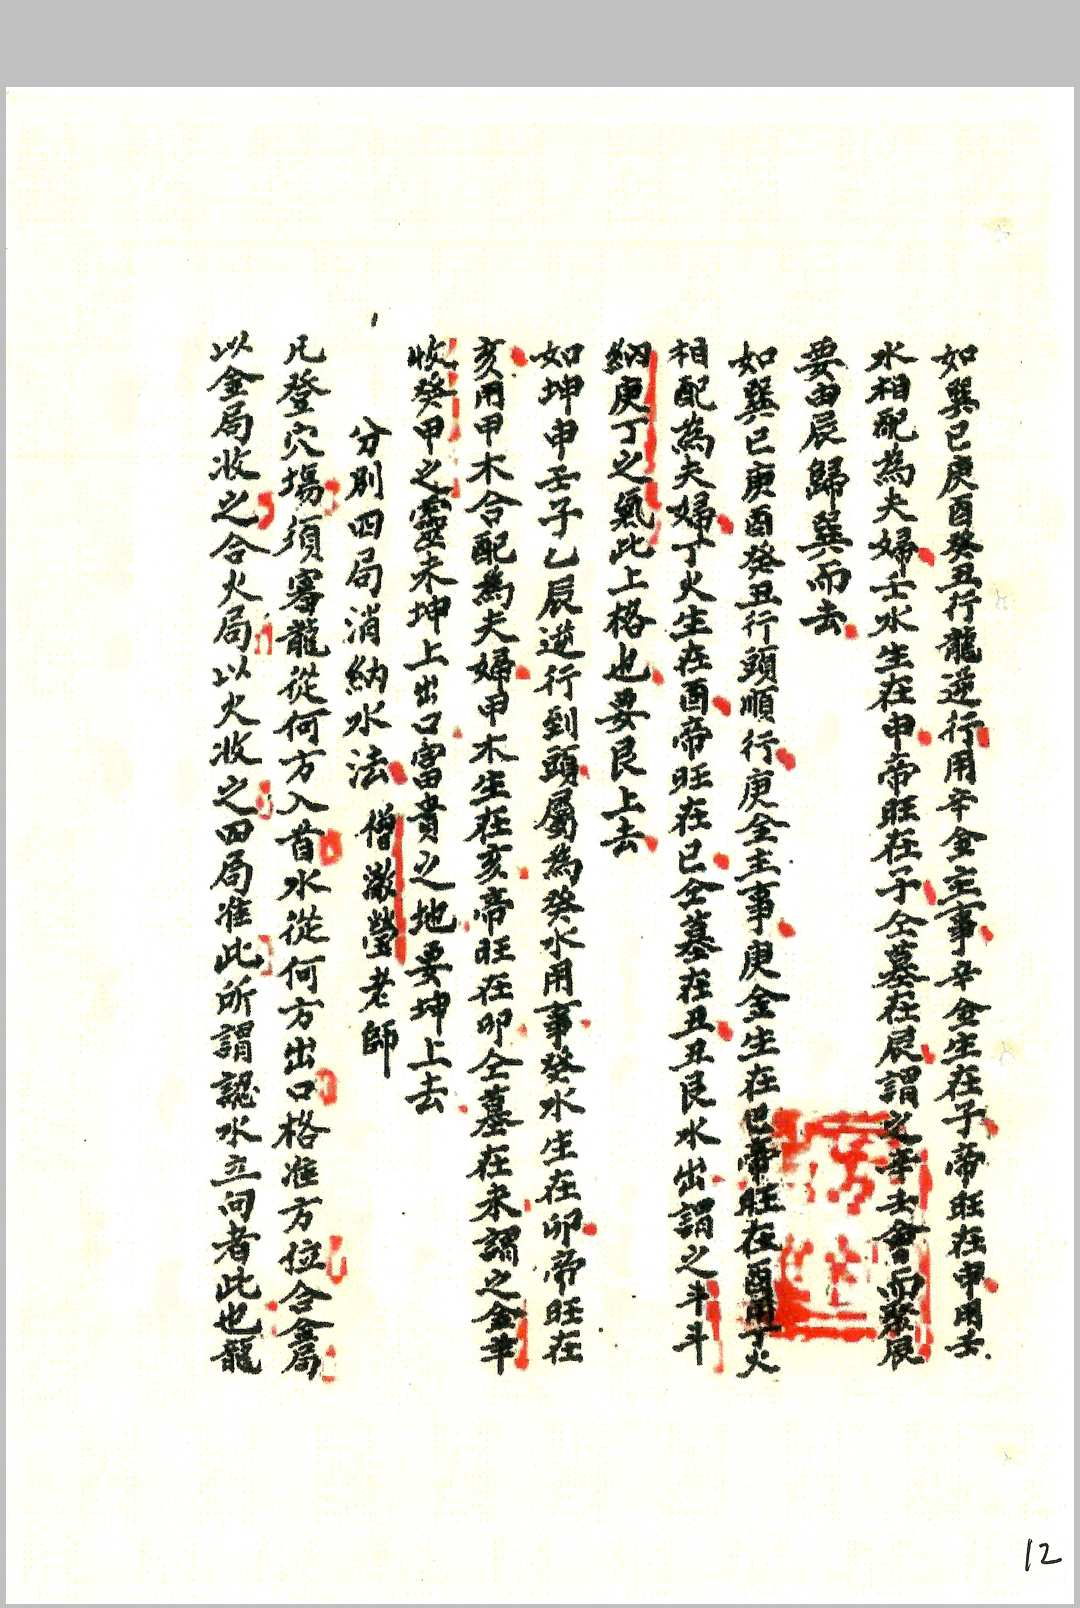 如巽巳庚酉癸丑行龍逆行用辛金主事辛金生在子帝旺在申用壬
水相配為夫婦壬水生在申帝旺在子仝墓在辰謂之辛壬會而聚辰
要由辰歸巽而去
如巽巳庚酉癸丑行頭順行庚金主事庚金生在巳帝旺在酉用丁火
相配為夫婦丁火生在酉帝旺在巳仝墓在丑丑艮水出謂之斗斗
納庚丁之氣此上格也要艮上去
如坤申壬子乙辰逆行到頭屬為癸水用事癸水生在卯帝旺在
亥用甲木合配為夫婦甲木生在亥帝旺在卯仝墓在未謂之金羊
收癸甲之靈未坤上出口富貴之地要坤上去
分別四局消納水法 僧澈瑩老師
凡登穴場須審龍從何方入首水從何方出口格准方位合金局
以金局收之合火局以火收之四局准此所謂認水立向者此也龍
12